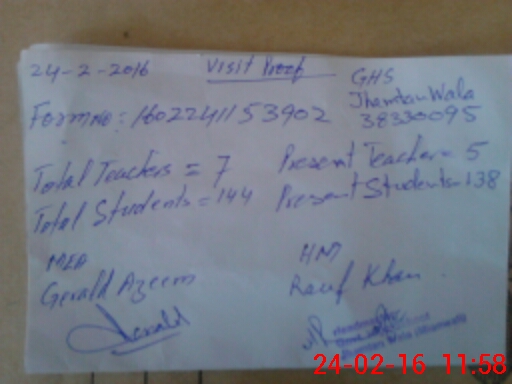 24-2-2016
Visit Proof
GHS
Jhambu Wala
38330095
Form no: 160224115 3902
Total Teachers = 7
Present Teacher = 5
Total Students = 144
Present Students = 138
MEA
HM
Gerald Azeem
Rauf Khan
Gerald
Headmaster
24-02-16 11:58